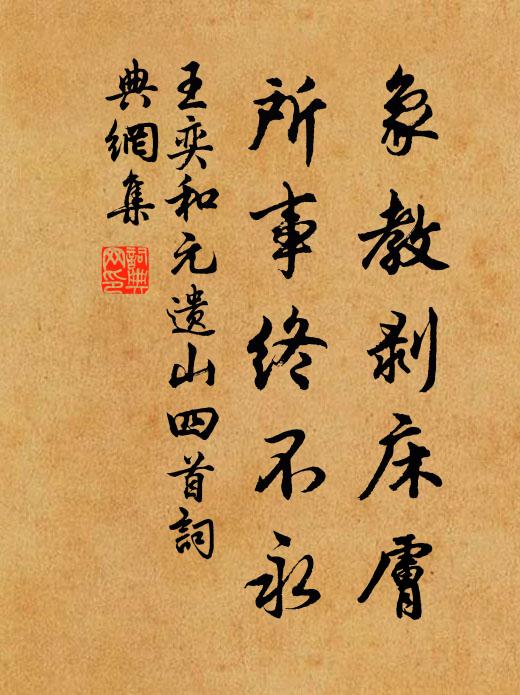 象教剥床膚
所事終不永
王奕和元遗山四首詞
典網集
詞典網印